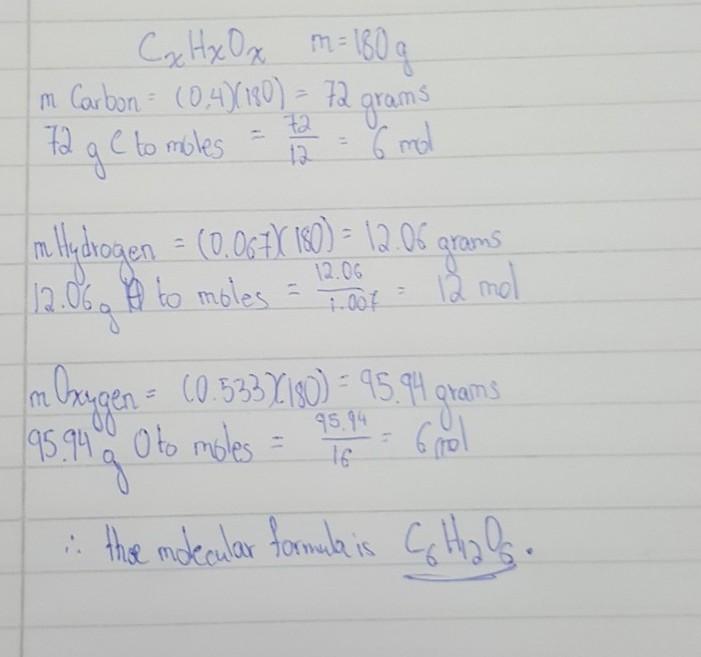 CxHxOx m=180g
m Carbon = (0.4)(180) = 72 grams
72 g C to moles = 72/12 = 6 mol
m Hydrogen = (0.067)(180) = 12.06 grams
12.06 g H to moles = 12.06/1.007 = 12 mol
m Oxygen = (0.533)(180) = 95.94 grams
95.94 g O to moles = 95.94/16 = 6 mol
∴ the molecular formula is C6H12O6.